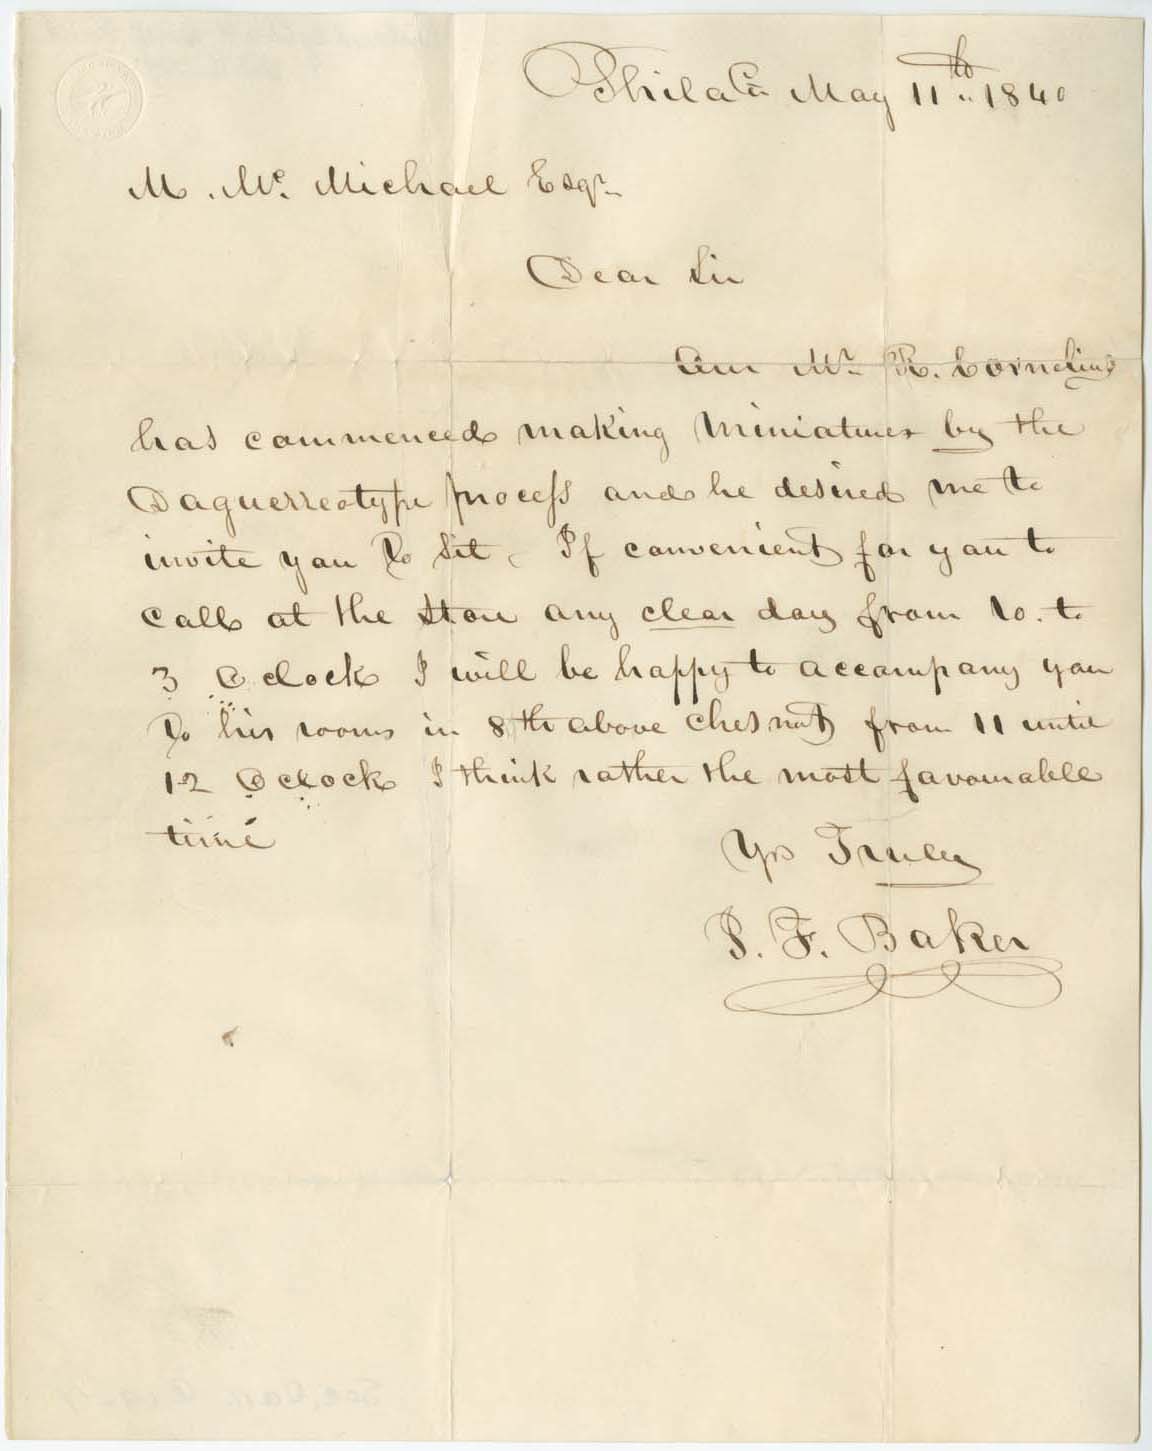 Philada May 11th 1840
M. Mc. Michael Esqr
Dear Sir
Our Mr. R. Cornelius
has commenced making Miniatures by the
Daguerreotype process and he desired me to
invite you to sit. If convenient for you to
call at the Store any clear day from 10. to
3 Oclock I will be happy to accompany you
to his rooms in 8th above Chesnut from 11 until
12 Oclock I think rather the most favourable
time
Yrs Truly
I. F. Baker